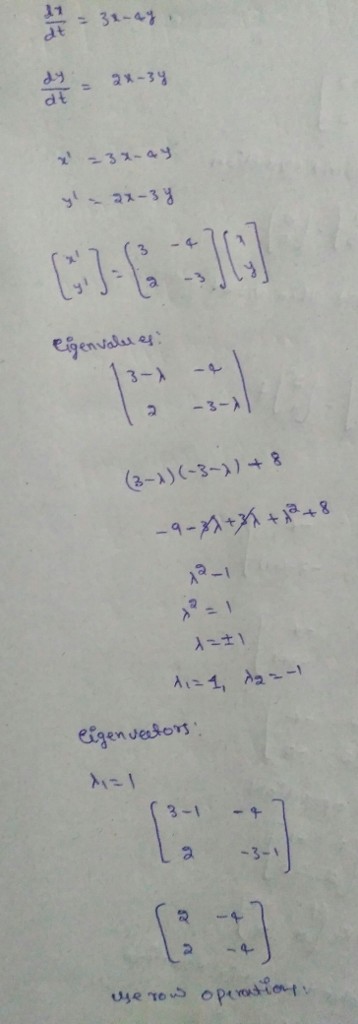 dx/dt = 3x-4y.
dy/dt = 2x-3y
x' = 3x-4y
y' = 2x-3y
[x' y'] = [3 -4 2 -3] [x y]
Eigenvalues:
|3-λ -4|
|2 -3-λ|
(3-λ)(-3-λ)+8
-9-3λ+3λ+λ²+8
λ²-1
λ²=1
λ=±1
λ₁=1, λ₂=-1
Eigenvectors:
λ₁=1
[3-1 -4]
[2 -3-1]
[2 -4]
[2 -4]
Use row operation: